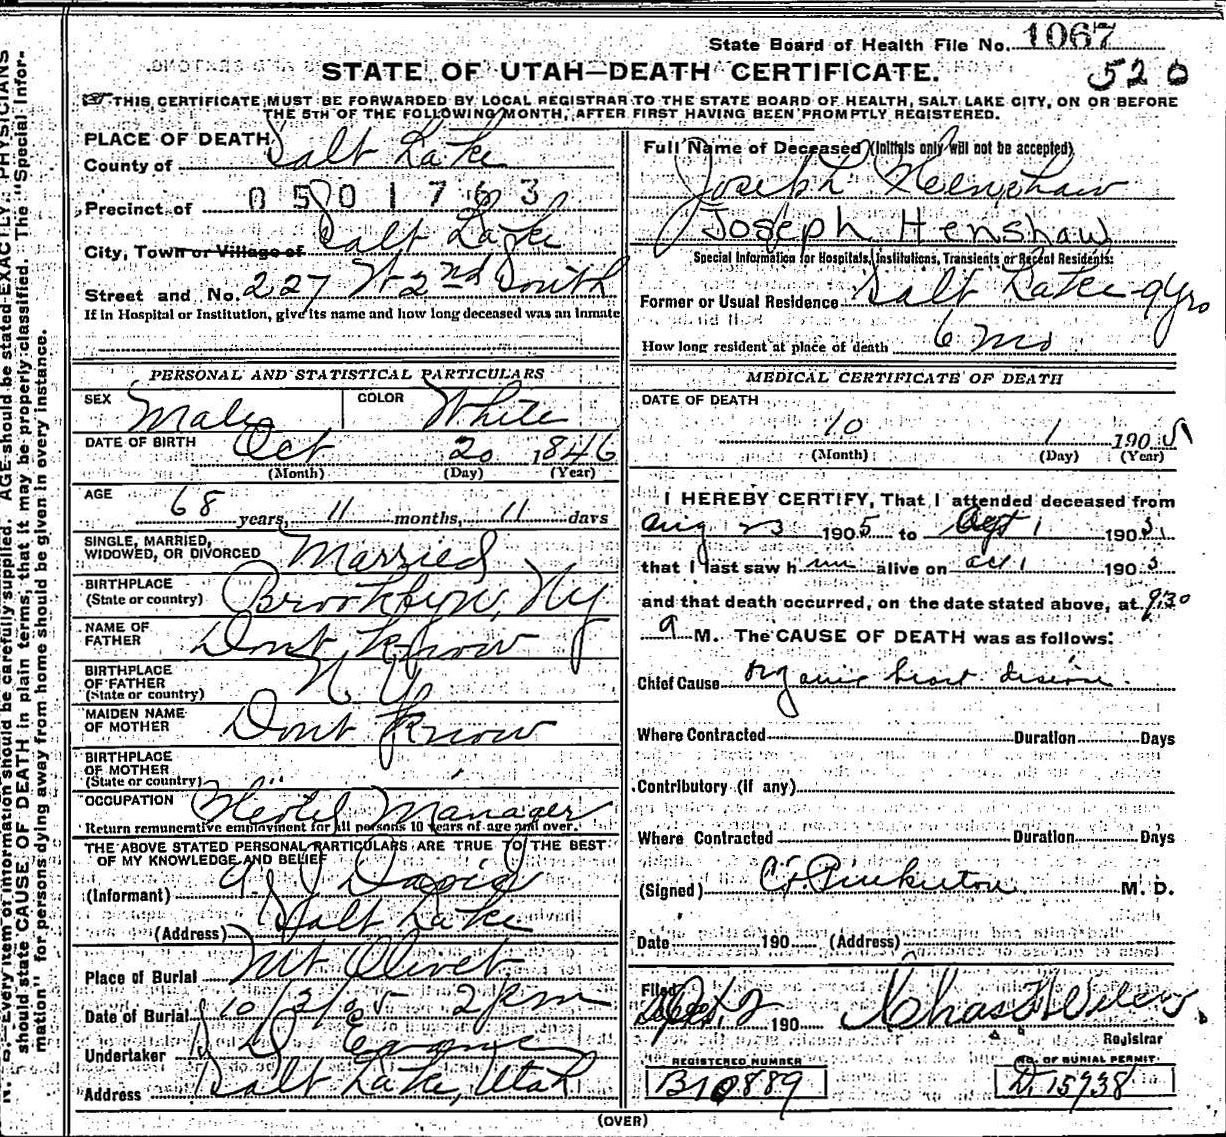 State Board of Health File No. 1067
520
STATE OF UTAH—DEATH CERTIFICATE.
THIS CERTIFICATE MUST BE FORWARDED BY LOCAL REGISTRAR TO THE STATE BOARD OF HEALTH, SALT LAKE CITY, ON OR BEFORE
THE 5TH OF THE FOLLOWING MONTH, AFTER FIRST HAVING BEEN PROMPTLY REGISTERED.
PLACE OF DEATH
County of Salt Lake
Precinct of 0501763
City, Town or Village of Salt Lake
Street and No. 227 W 2nd South
If in Hospital or Institution, give its name and how long deceased was an inmate
Full Name of Deceased (Initials only will not be accepted)
Joseph Henshaw
Joseph Henshaw
Special Information for Hospitals, Institutions, Transients or Recent Residents:
Former or Usual Residence Salt Lake 9yrs
How long resident at place of death 6 mo
PERSONAL AND STATISTICAL PARTICULARS
SEX Male COLOR White
DATE OF BIRTH Oct 20 1846
(Month) (Day) (Year)
AGE 68 years, 11 months, 11 days
SINGLE, MARRIED,
WIDOWED, OR DIVORCED Married
BIRTHPLACE
(State or country) Brooklyn, Ny
NAME OF
FATHER Dont Know
BIRTHPLACE
OF FATHER
(State or country) N Y
MAIDEN NAME
OF MOTHER Dont Know
BIRTHPLACE
OF MOTHER
(State or country) "
OCCUPATION Hotel Manager
Return remunerative employment for all persons 10 years of age and over.
THE ABOVE STATED PERSONAL PARTICULARS ARE TRUE TO THE BEST
OF MY KNOWLEDGE AND BELIEF
(Informant) David
(Address) Salt Lake
Place of Burial Mt Olivet
Date of Burial 10/3/05 2 pm
Undertaker Evans
Address Salt Lake, Utah
MEDICAL CERTIFICATE OF DEATH
DATE OF DEATH
10 1 1905
(Month) (Day) (Year)
I HEREBY CERTIFY, That I attended deceased from
Aug 23 1905 to 1 190
that I last saw him alive on Oct 1 190
and that death occurred, on the date stated above, at 9:30
a M. The CAUSE OF DEATH was as follows:
Chief Cause Organic heart disease.
Where Contracted Duration Days
Contributory (if any)
Where Contracted Duration Days
(Signed) Pinkerton M. D.
Date 190 (Address)
Filed
Oct. 2 190 Chas
Registrar
REGISTERED NUMBER
B10889
NO. OF BURIAL PERMIT
D 15938
(OVER)
N. B.—Every item of information should be carefully supplied. AGE should be stated EXACTLY. PHYSICIANS
should state CAUSE OF DEATH in plain terms, that it may be properly classified. The "Special Infor-
mation" for persons dying away from home should be given in every instance.